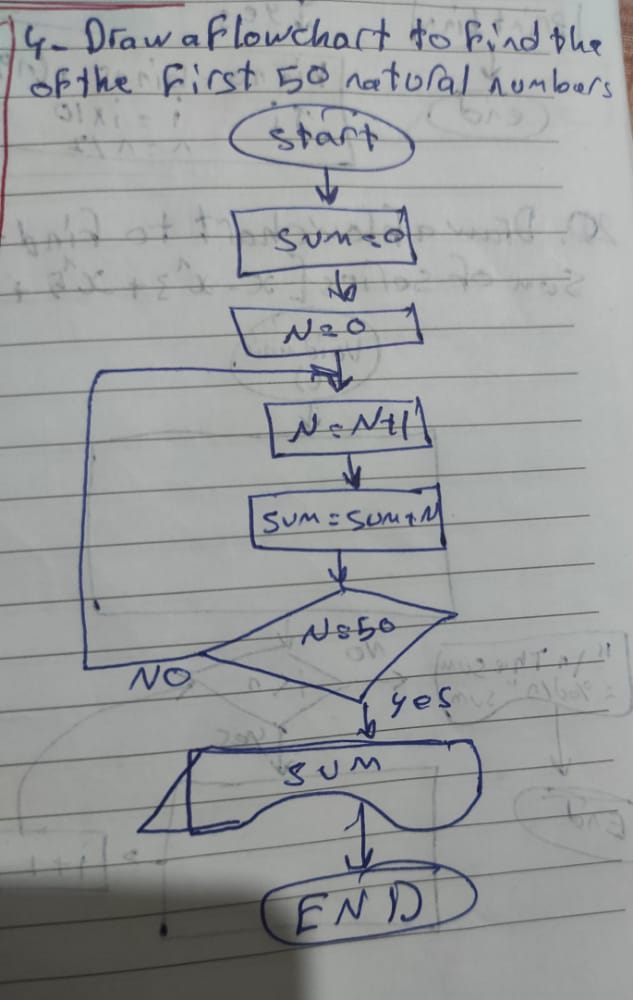 4- Draw a flowchart to find the
of the first 50 natural numbers
Start
SUM=0
N=0
N=N+1
SUM=SUM+N
N=50
NO
yes
SUM
END